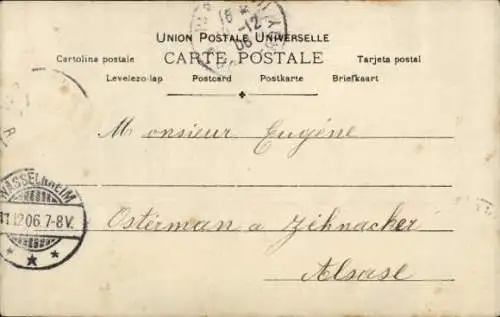 Union Postale Universelle
CARTE POSTALE
Cartolina postale Tarjeta postal
Levelezo-lap Postcard Postkarte Briefkaart
16 -12 06
Monsieur Eugéne
WASSELNHEIM
11.12.06.7-8V.
Osterman a Zihnacker
Alsase